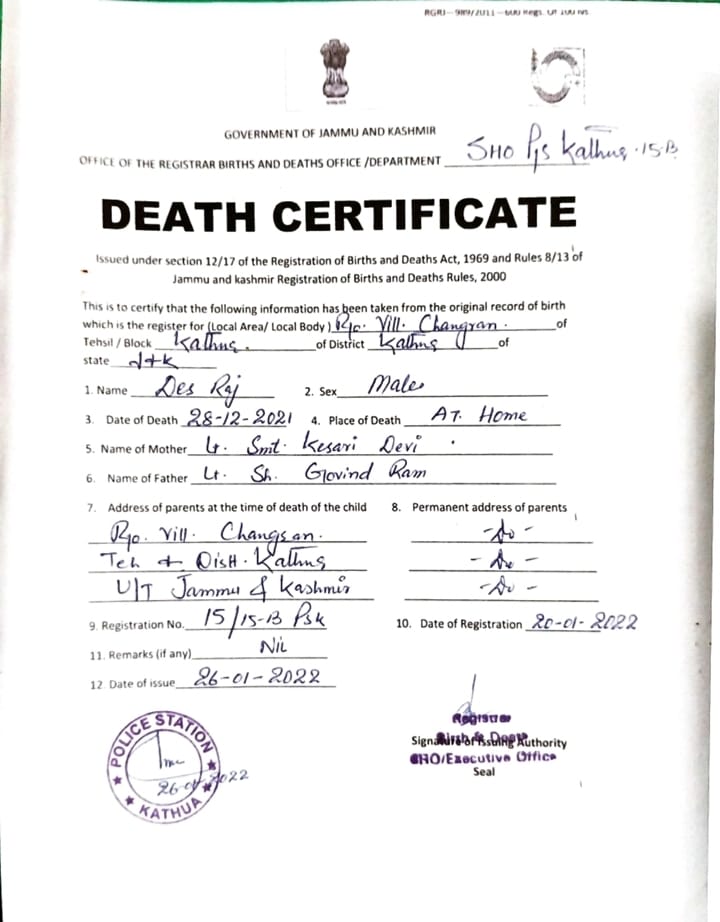 RGRJ - 989/2011 - 600 Regs. Of 100 lvs
GOVERNMENT OF JAMMU AND KASHMIR
OFFICE OF THE REGISTRAR BIRTHS AND DEATHS OFFICE /DEPARTMENT SHO P/S Kathua 15-B
DEATH CERTIFICATE
Issued under section 12/17 of the Registration of Births and Deaths Act, 1969 and Rules 8/13 of
Jammu and kashmir Registration of Births and Deaths Rules, 2000
This is to certify that the following information has been taken from the original record of birth
which is the register for (Local Area/ Local Body) R/o. Vill. Changran. of
Tehsil / Block Kathua. of District Kathua of
state J+K
1. Name Des Raj 2. Sex Male
3. Date of Death 28-12-2021 4. Place of Death AT Home
5. Name of Mother Lt. Smt. Kesari Devi
6. Name of Father Lt. Sh. Govind Ram
7. Address of parents at the time of death of the child 8. Permanent address of parents
R/o. Vill. Changran. -do-
Teh + Distt. Kathua -do-
U/T Jammu & Kashmir -do-
9. Registration No. 15/15-B PSK 10. Date of Registration 20-01-2022
11. Remarks (if any) Nil
12 Date of issue 26-01-2022
POLICE STATION
KATHUA
26-01-2022
Registrar
Signature of Issuing Authority
SHO/Executive Office
Seal